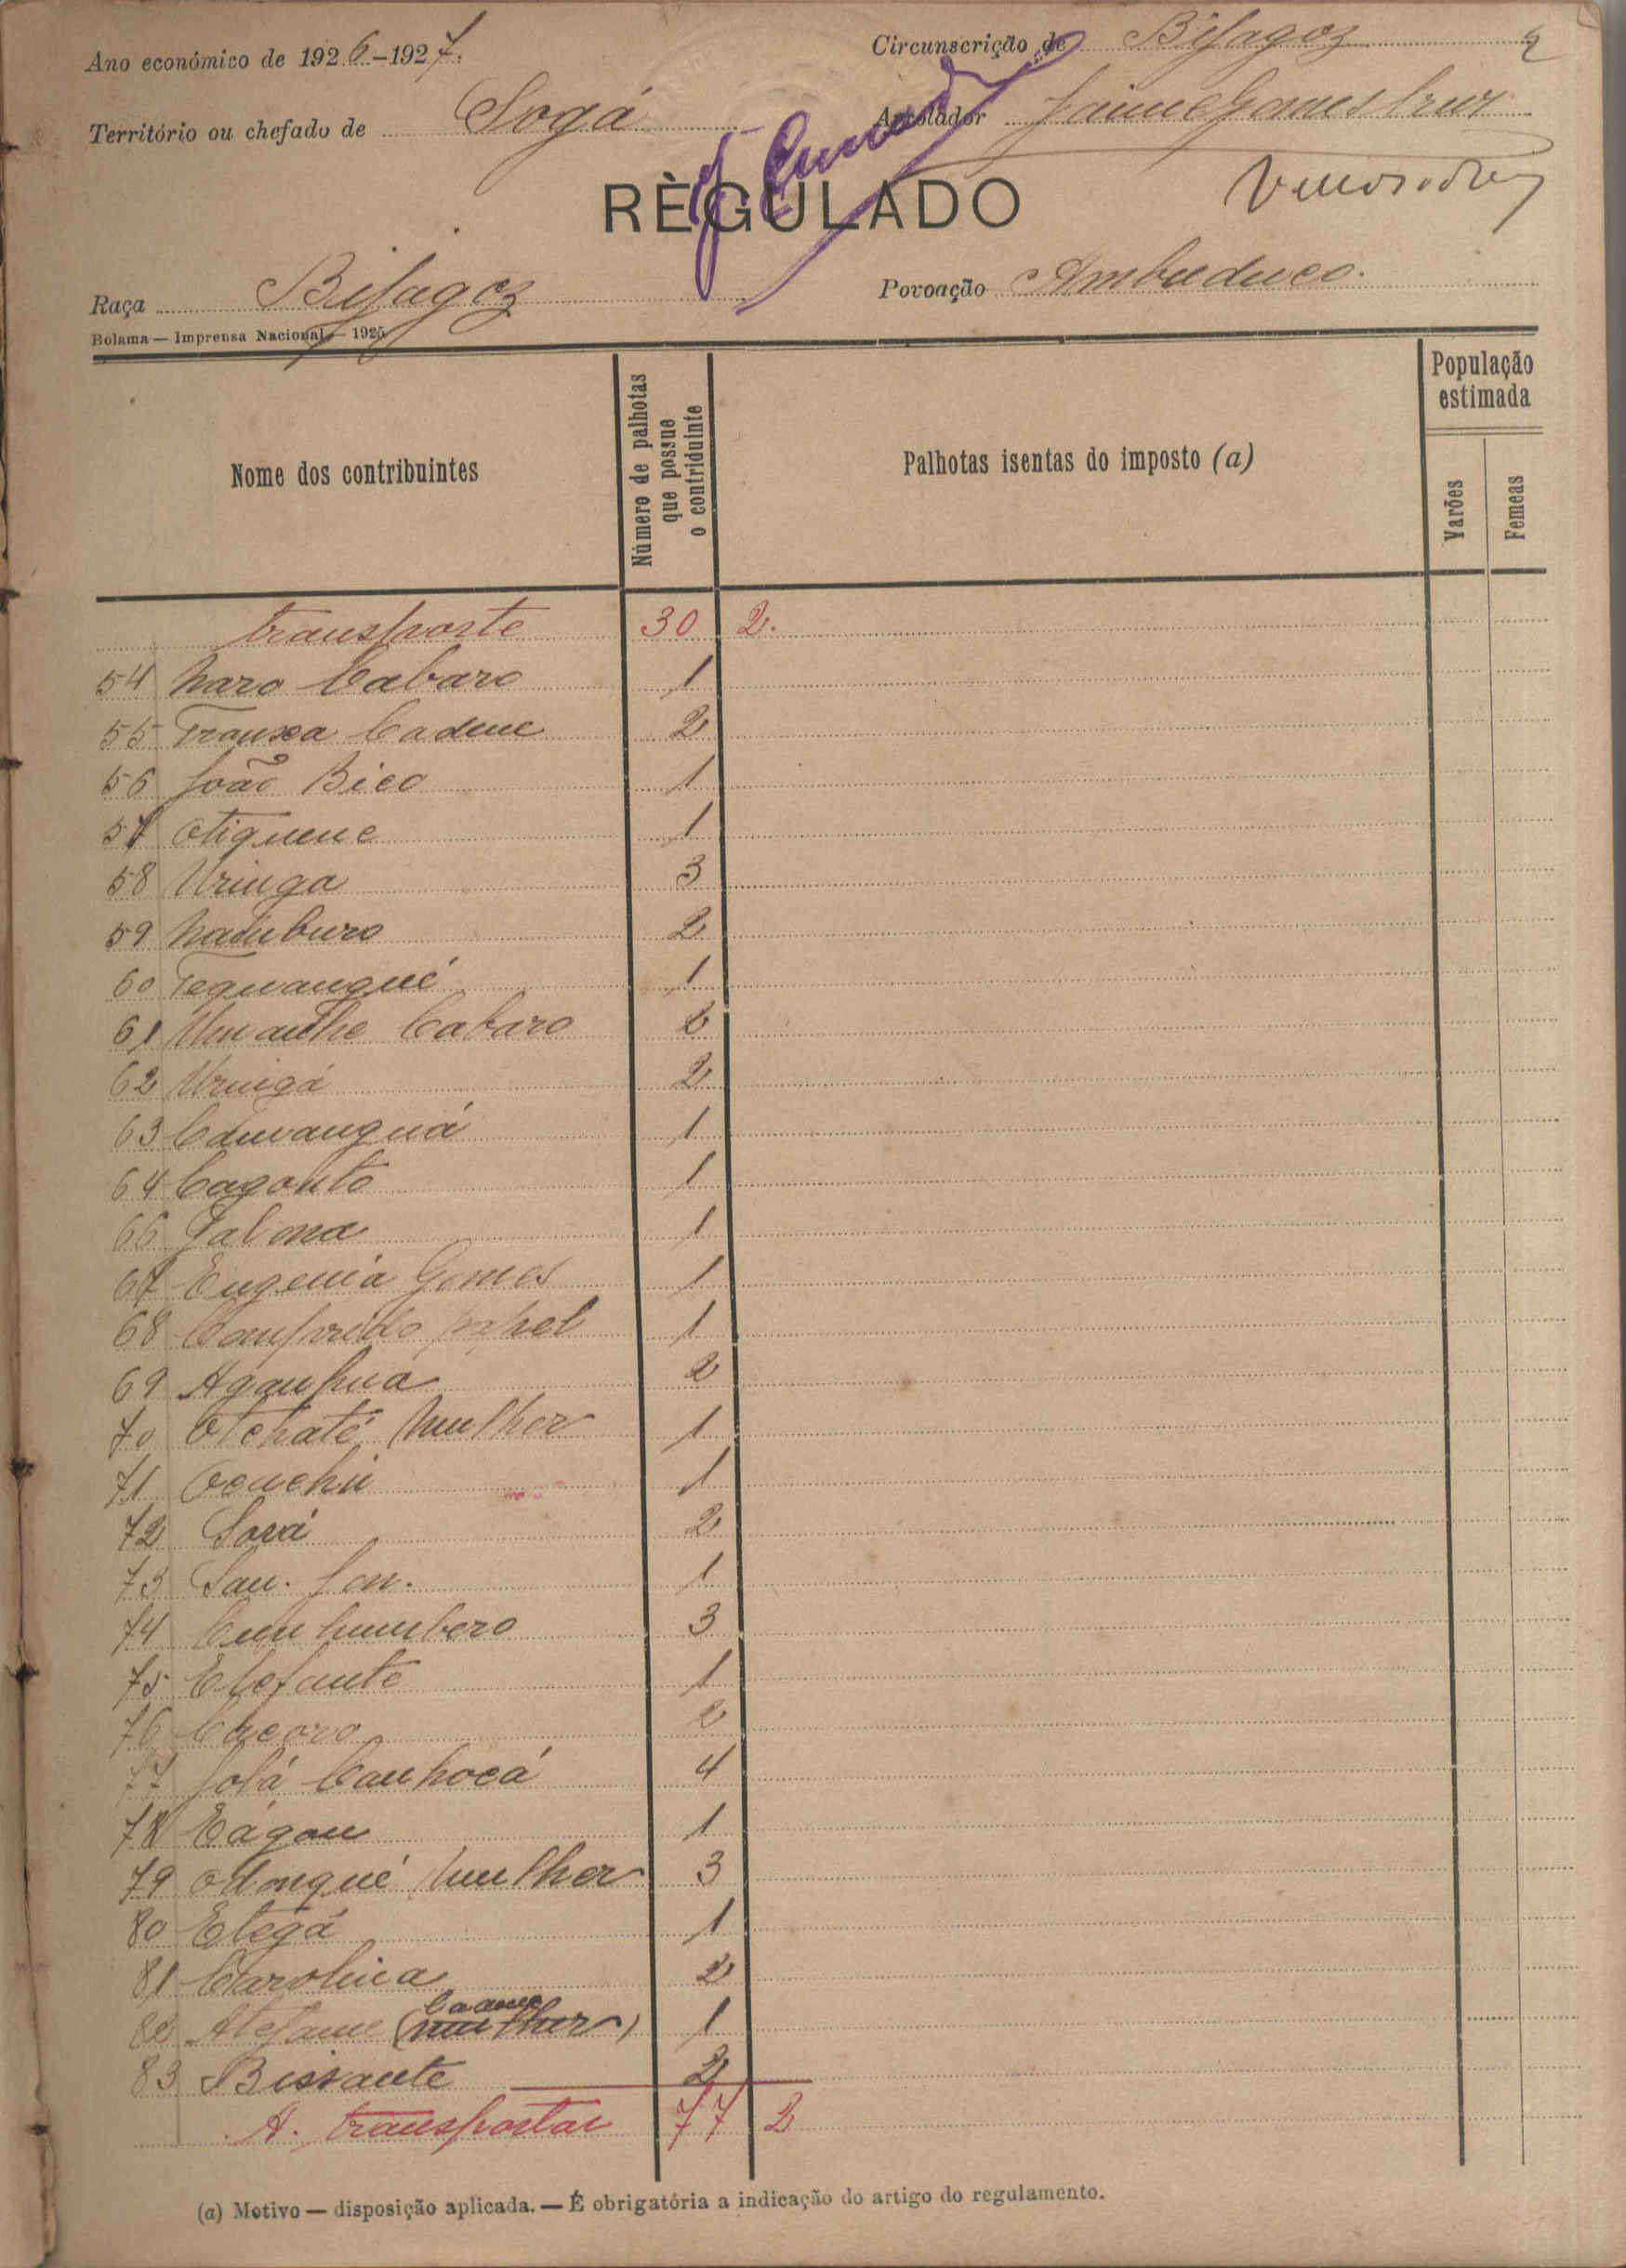 Ano económico de 1926-1927.
Circunscrição de Bijagoz 2
Território ou chefado de Sogá
Arrolador Jaime Gomes Cruz
RÈGULADO
Raça Bijagoz
Povoação Ambuduco.
Bolama — Imprensa Nacional — 1925
Nome dos contribuintes
Número de palhotas que possue o contriduinte
Palhotas isentas do imposto (a)
População estimada
Varões
Femeas
transporte 30 2.
54 Naro Cabaro 1
55 Tranxa Cadene 2
56 João Bico 1
57 Otiquene 1
58 Uringa 3
59 Naduburo 2
60 Tequangué 1
61 Cabaro 2
62 Uringá 2
63 1
64 Cagonto 1
66 Jalona 1
67 Eugenia Gomes 1
68 papel 1
69 Aganhua 2
70 Otchaté Mulher 1
71 1
72 Sová 2
73 1
74 3
75 Elefante 1
76 Cacoro 2
77 Jolá Canhocá 4
78 Eágou 1
79 Odongué Mulher 3
80 Etegá 1
81 Carolina 2
82 1
83 Bissante 2
A. transportar 77 2
(a) Motivo — disposição aplicada. — É obrigatória a indicação do artigo do regulamento.